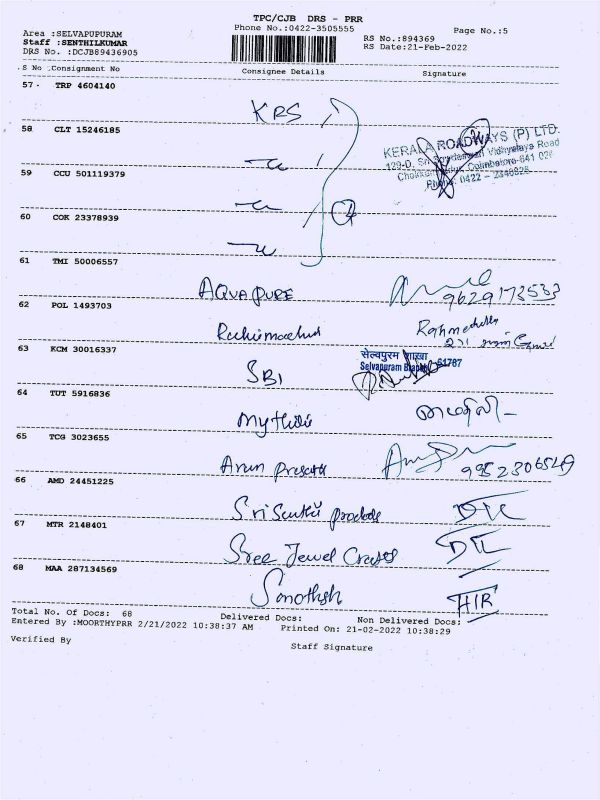 TPC/CJB DRS - PRR
Area :SELVAPUPURAM Phone No.:0422-3505555 Page No.:5
Staff :SENTHILKUMAR RS No.:894369
DRS No. :DCJB89436905 RS Date:21-Feb-2022
S No Consignment No Consignee Details Signature
57 TRP 4604140
KRS
58 CLT 15246185
KERALA ROADWAYS (P) LTD.
59 CCU 501119379
Phone: 0422 -
60 COK 23378939
4
61 TMI 50006557
AQUA PURE 9629173533
62 POL 1493703
63 KCM 30016337
सेल्वपुरम शाखा
Selvapuram Branch 61787
SBI
64 TUT 5916836
Mythili
65 TCG 3023655
Arun Prasath
66 AMD 24451225
Sri
67 MTR 2148401
Sree Jewel
68 MAA 287134569
Total No. Of Docs: 68 Delivered Docs: Non Delivered Docs:
Entered By :MOORTHYPRR 2/21/2022 10:38:37 AM Printed On: 21-02-2022 10:38:29
Verified By Staff Signature